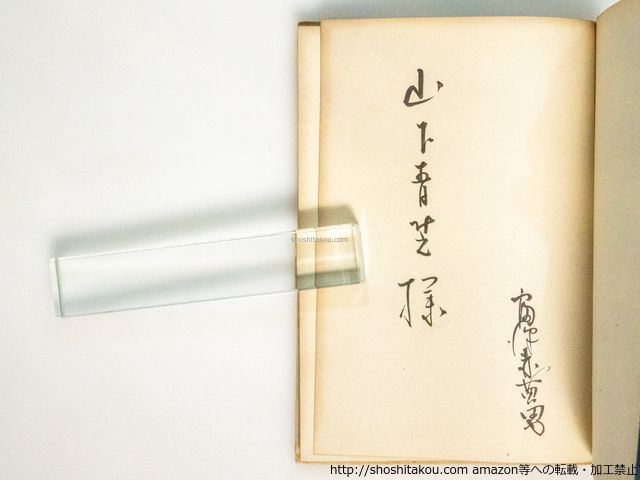 山下青芝様
富澤赤黄男
shoshitakou.com
http://shoshitakou.com amazon等への転載・加工禁止